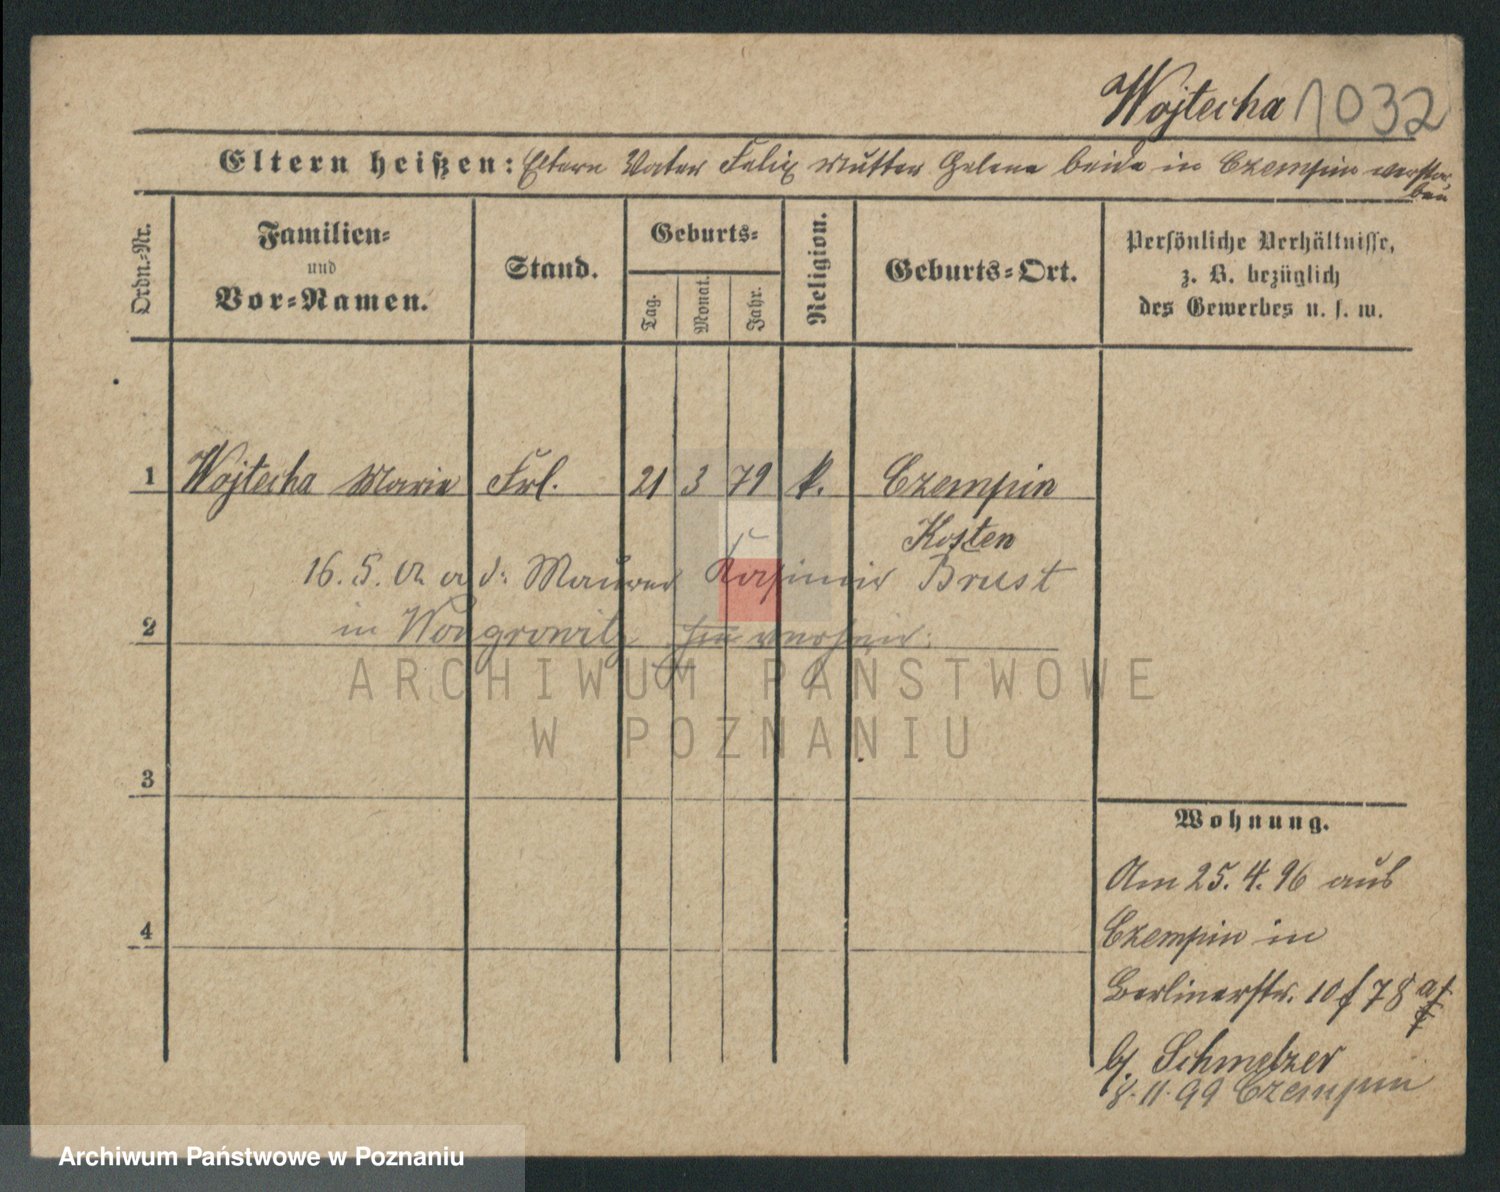 Wojtecha 1032
Eltern heißen: Eltern Vater Felix Mutter Helene beide in Czempin verstor-
ben
Ordn.-Nr.
Familien-
und
Vor-Namen.
Stand.
Geburts-
Tag.
Monat.
Jahr.
Religion.
Geburts-Ort.
Persönliche Verhältnisse,
z. B. bezüglich
des Gewerbes u. s. w.
1 Wojtecha Marie Frl. 21 3 79 k. Czempin
Kosten
16. 5. a d: Maurer Kasimir Brust
2 in Wongrowitz verheir:
3
4
Wohnung.
Am 25. 4. 96 aus
Czempin in
Berlinerstr. 10
b/ Schmelzer
8. 11. 99 Czempin
ARCHIWUM PAŃSTWOWE
W POZNANIU
Archiwum Państwowe w Poznaniu